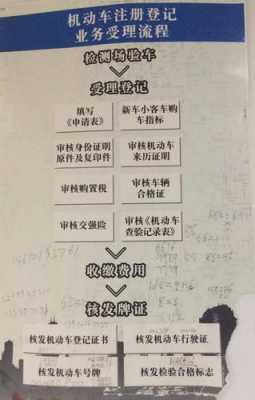 机动车注册登记
业务受理流程
检测场验车
受理登记
填写
《申请表》
新车小客车购
车指标
审核身份证明
原件及复印件
审核机动车
来历证明
审核购置税
审核车辆
合格证
审核交强险
审核《机动车
查验记录表》
收缴费用
核发牌证
核发机动车登记证书
核发机动车行驶证
核发机动车号牌
核发检验合格标志